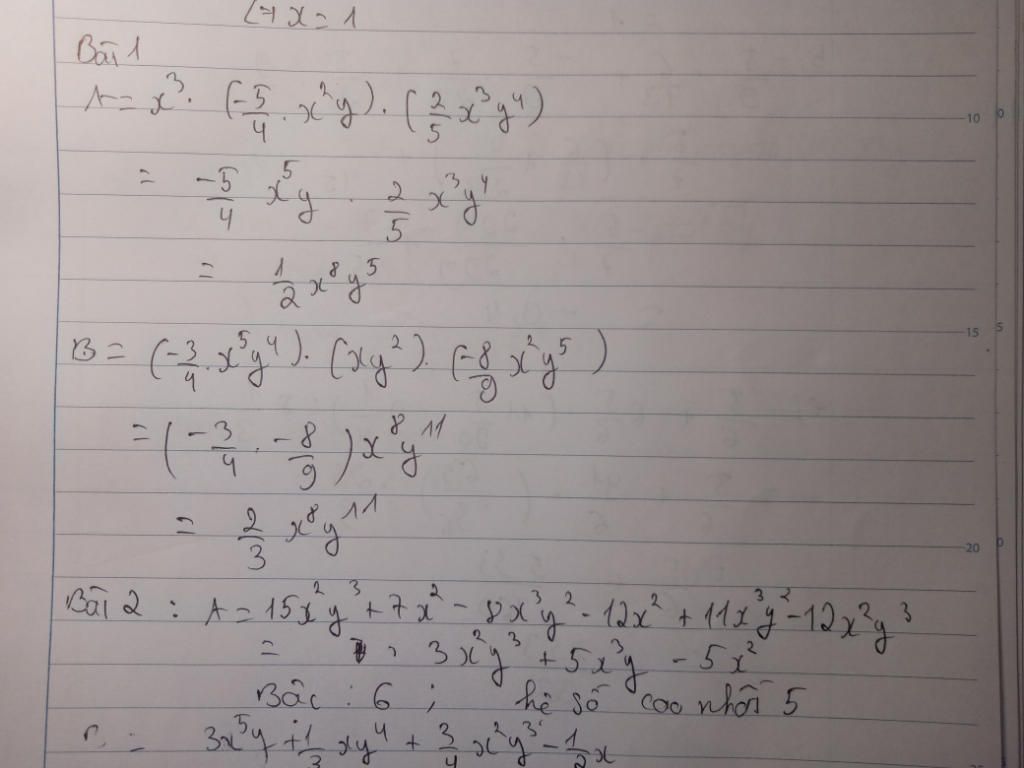 ↔ x = 1
Bài 1
A = x³ · (-5/4 · x²y) · (2/5 x³y⁴)
= -5/4 x⁵y · 2/5 x³y⁴
= 1/2 x⁸y⁵
B = (-3/4 · x⁵y⁴) · (xy²) · (-8/9 x²y⁵)
= (-3/4 · -8/9) x⁸y¹¹
= 2/3 x⁸y¹¹
Bài 2 : A = 15x²y³ + 7x² - 8x³y² - 12x² + 11x³y² - 12x²y³
= 3x²y³ + 5x³y - 5x²
Bậc : 6 ; hệ số cao nhất 5
= 3x⁵y + 1/3 xy⁴ + 3/4 x²y³ - 1/2 x